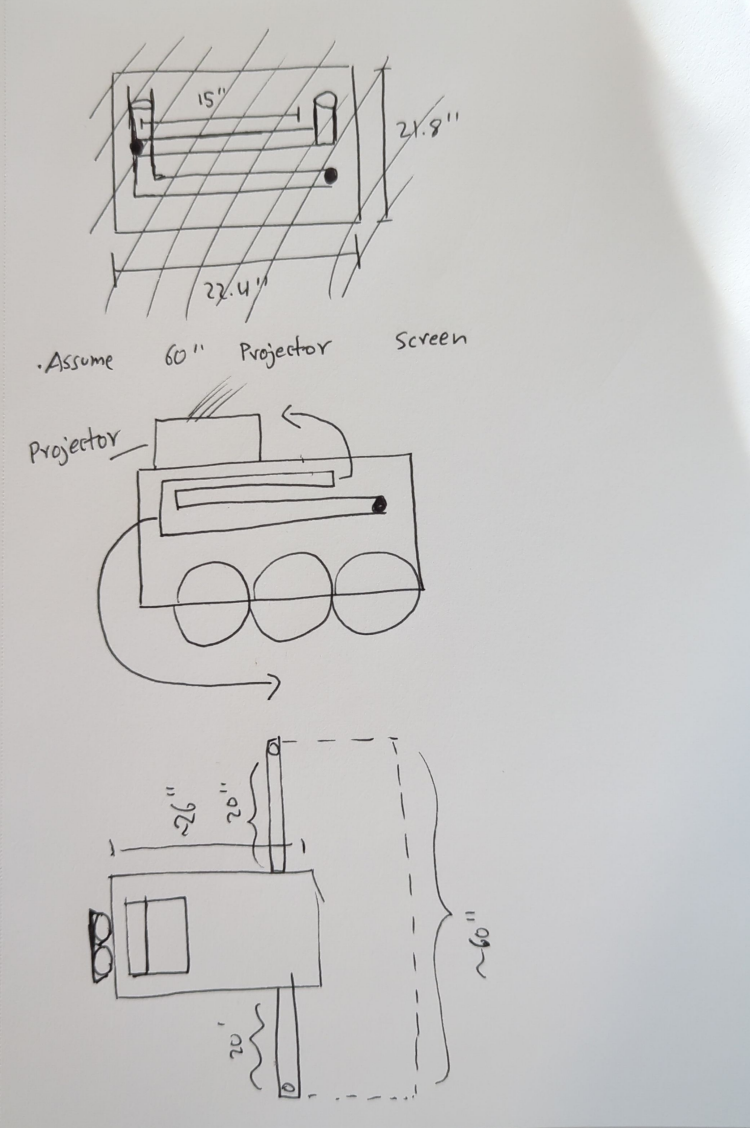 15"
21.8"
22.4"
.Assume 60" Projector Screen
Projector
~26"
20"
~60"
20'